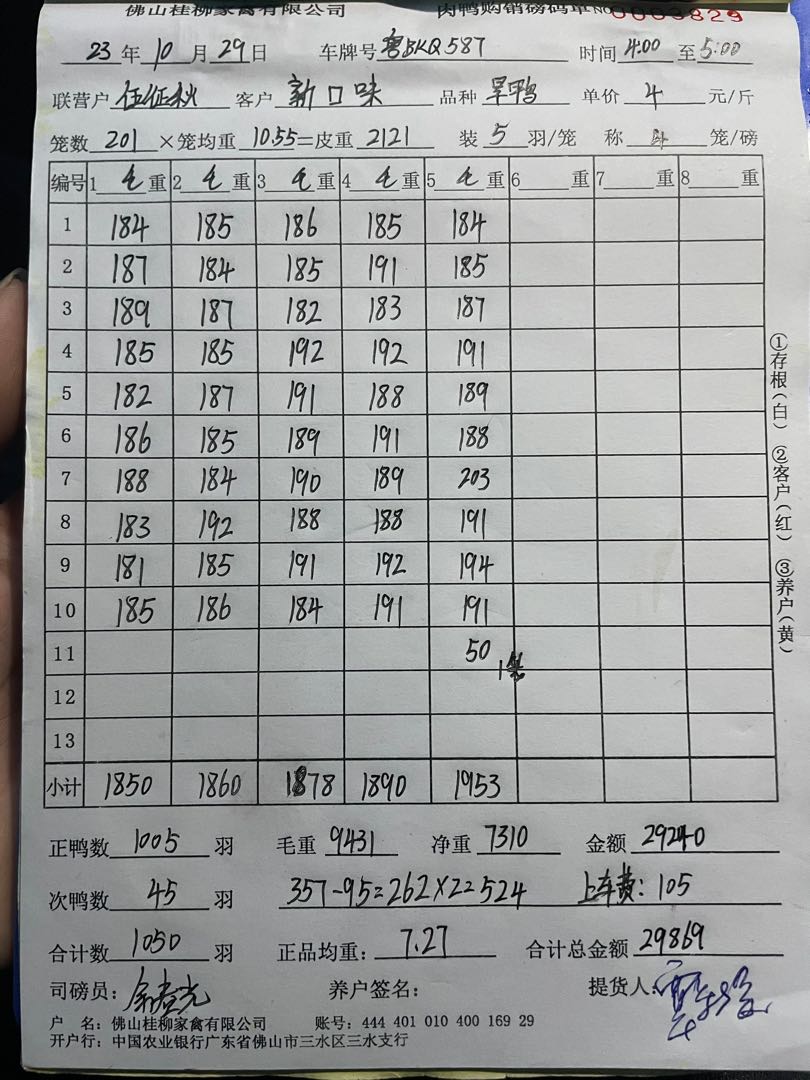 佛山桂柳家禽有限公司 肉鸭购销磅码单 NO 0003829
23年10月29日 车牌号 粤BKQ587 时间 4:00 至 5:00
联营户 伍征秋 客户 新口味 品种 旱鸭 单价 4 元/斤
笼数 201 ×笼均重 10.55=皮重 2121 装 5 羽/笼 称 4 笼/磅
编号 1 毛 重 2 毛 重 3 毛 重 4 毛 重 5 毛 重 6 重 7 重 8 重
1 184 185 186 185 184
2 187 184 185 191 185
3 189 187 182 183 187
4 185 185 192 192 191
5 182 187 191 188 189
6 186 185 189 191 188
7 188 184 190 189 203
8 183 192 188 188 191
9 181 185 191 192 194
10 185 186 184 191 191
11 50 1笼
12
13
小计 1850 1860 1878 1890 1953
正鸭数 1005 羽 毛重 9431 净重 7310 金额 29240
次鸭数 45 羽 357-95=262×2=524 上车费: 105
合计数 1050 羽 正品均重: 7.27 合计总金额 29869
司磅员: 养户签名: 提货人:
户 名: 佛山桂柳家禽有限公司 账号: 444 401 010 400 169 29
开户行: 中国农业银行广东省佛山市三水区三水支行
①存根(白) ②客户(红) ③养户(黄)